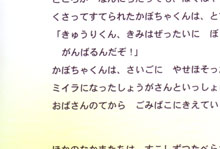 くさってすてられたかぼちゃくんは、と
「きゅうりくん、きみはぜったいに　ぼ
がんばるんだぞ！」
かぼちゃくんは、さいごに　やせほそっ
ミイラになったしょうがさんといっしゃ
おばさんのてから　ごみばこにきえてい